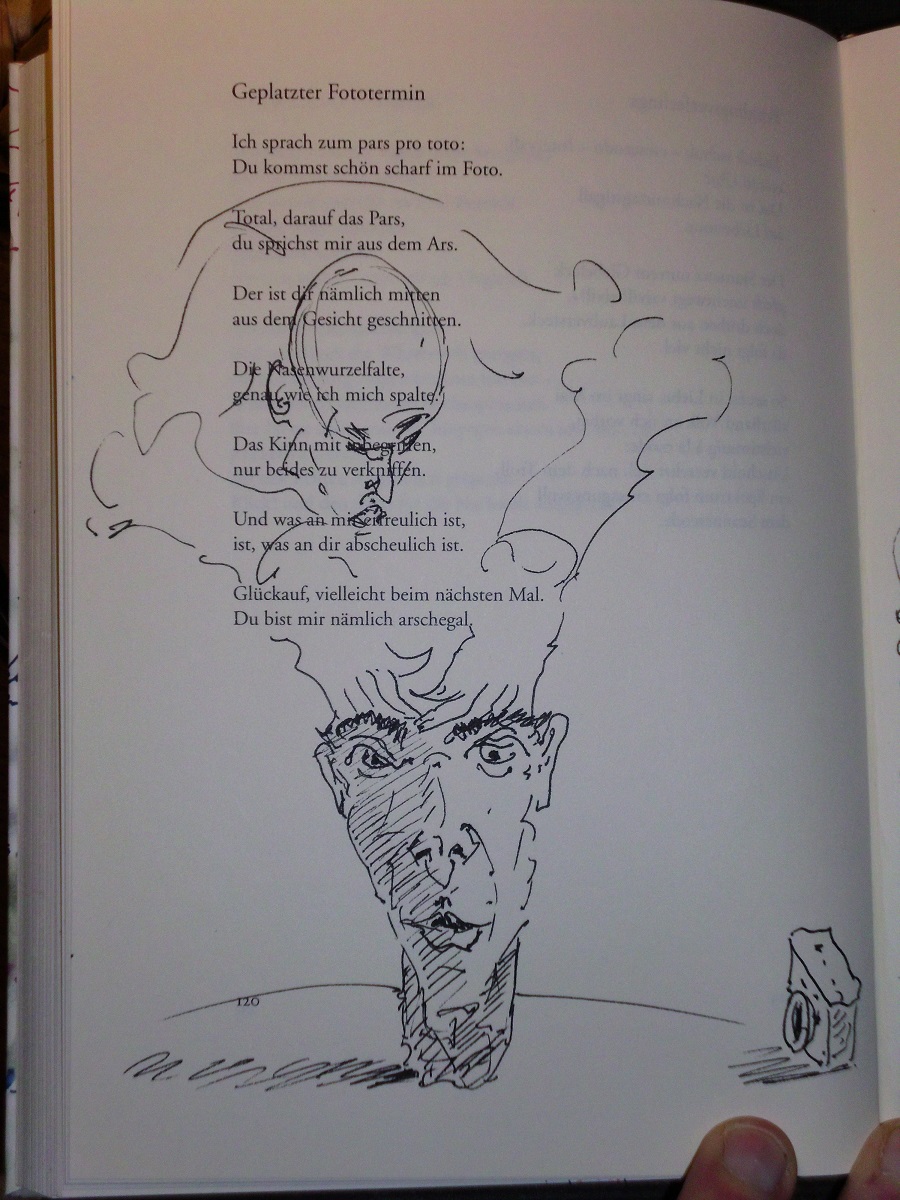 Geplatzter Fototermin
Ich sprach zum pars pro toto:
Du kommst schön scharf im Foto.
Total, darauf das Pars,
du sprichst mir aus dem Ars.
Der ist dir nämlich mitten
aus dem Gesicht geschnitten.
Die Nasenwurzelfalte,
genau wie ich mich spalte.
Das Kinn mit inbegriffen,
nur beides zu verkniffen.
Und was an mir erfreulich ist,
ist, was an dir abscheulich ist.
Glückauf, vielleicht beim nächsten Mal.
Du bist mir nämlich arschegal.
120